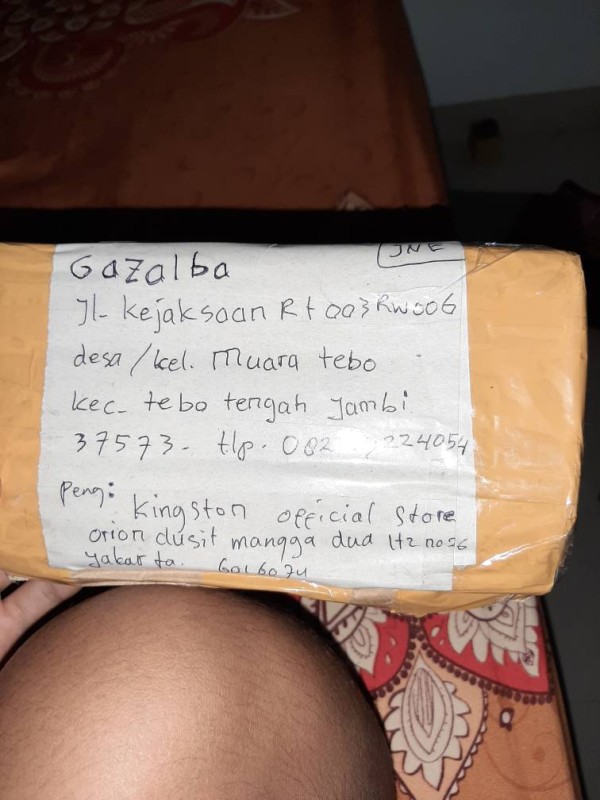 JNE
Gazalba
Jl- kejaksaan Rt 003 RW 006
desa/kel. Muara tebo
kec- tebo tengah Jambi
37573- tlp. 082 224054
Peng:
kingston official Store
orion dusit mangga dua lt2 no 56
Jakarta. 6016074